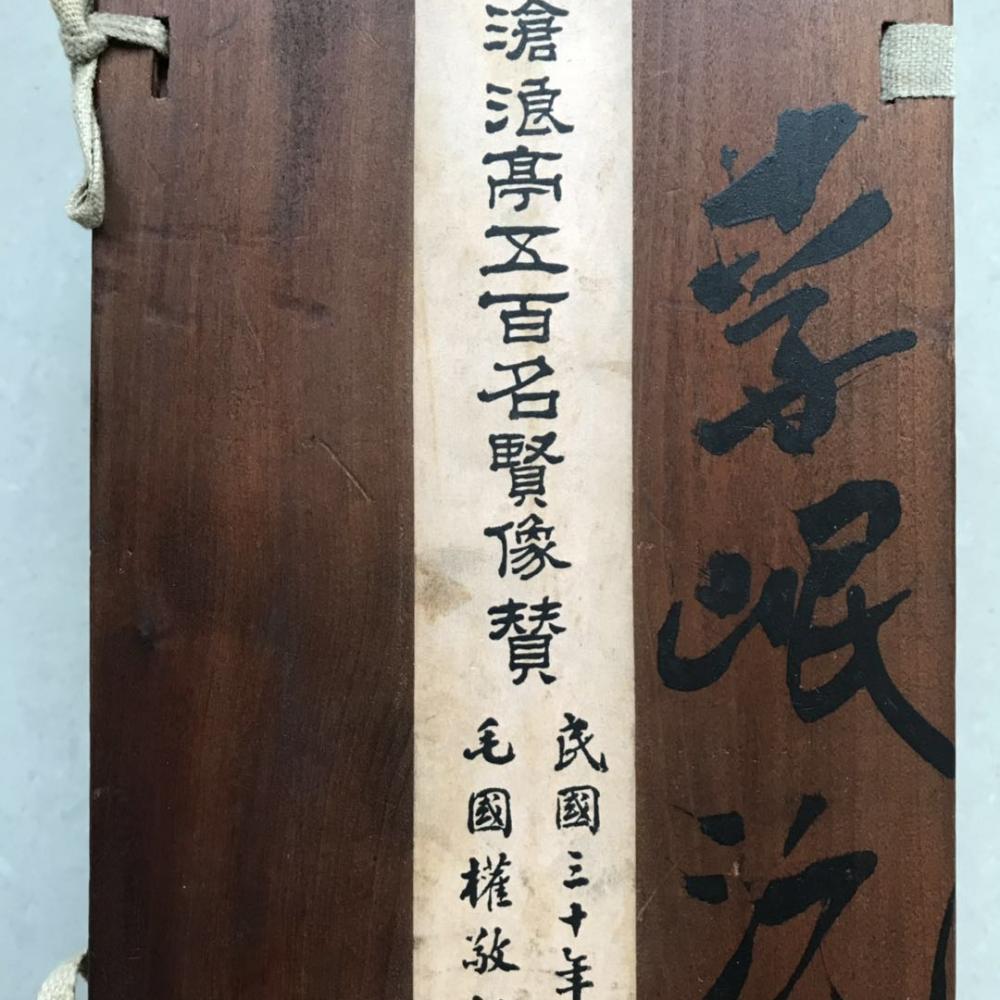 孝岷
滄浪亭五百名賢像贊
民國三十年
毛國權敬